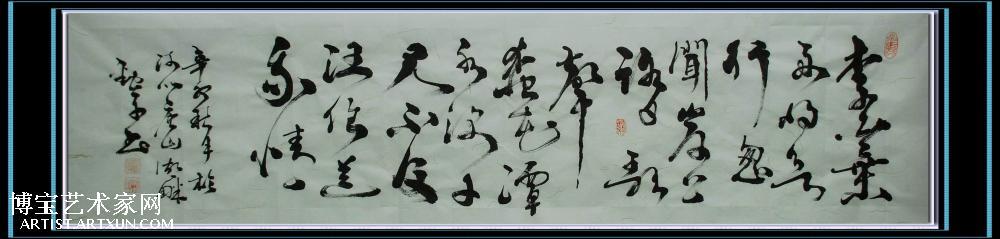 李白乘
舟将欲
行忽
闻岸上
踏歌
声
桃花潭
水深千
尺不及
汪伦送
我情
辛卯秋月
山湖畔
书
博宝艺术家网
ARTIST.ARTXUN.COM